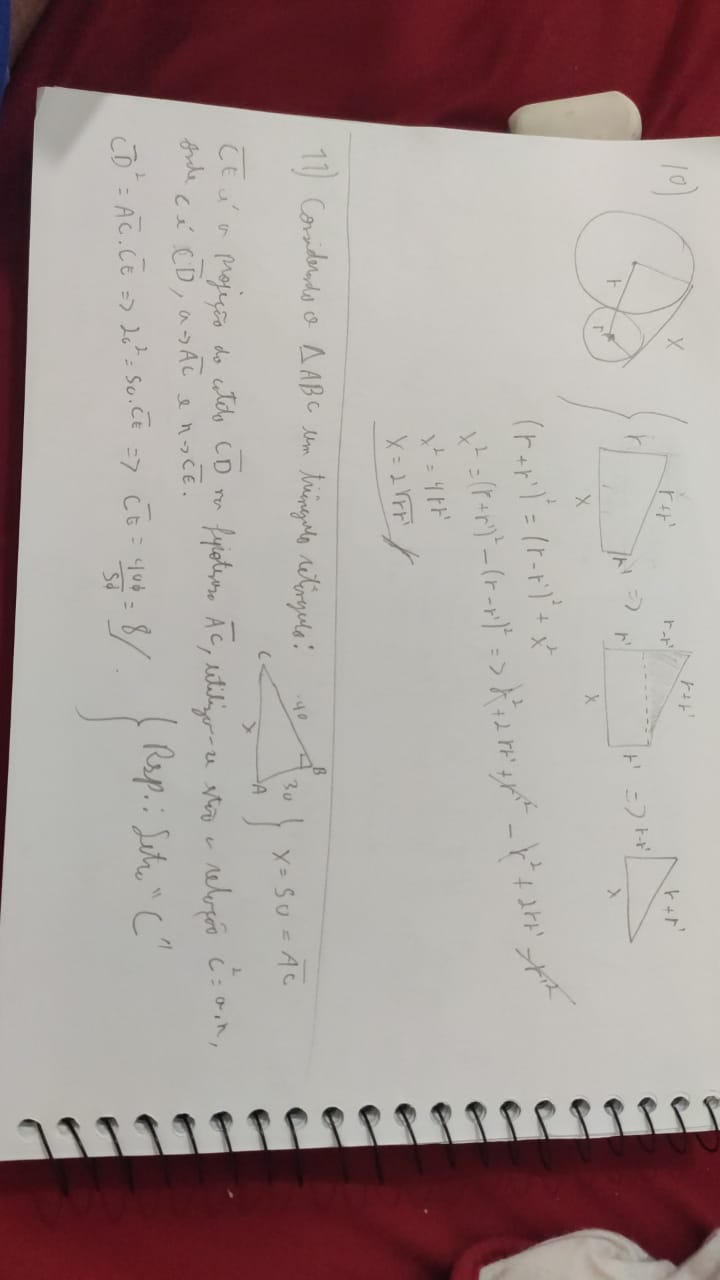 10)
r r' x
r r+r' r' x => r-r' r+r' r' r' x => r-r' r+r' x
(r+r')² = (r-r')² + x²
x² = (r+r')² - (r-r')² => r² + 2rr' + r'² - r² + 2rr' - r'²
x² = 4rr'
x = 2√rr'
11) Considerando o ΔABC um triângulo retângulo: C 40 B 30 A x } x = 50 = A̅C̅
C̅E̅ é a projeção do cateto C̅D̅ na hipotenusa A̅C̅, utiliza-se então a relação c² = a.n,
onde c é C̅D̅, a -> A̅C̅ e n -> C̅E̅.
C̅D̅² = A̅C̅.C̅E̅ => 20² = 50.C̅E̅ => C̅E̅ = 400/50 = 8 // . } Rsp.: Letra "C"